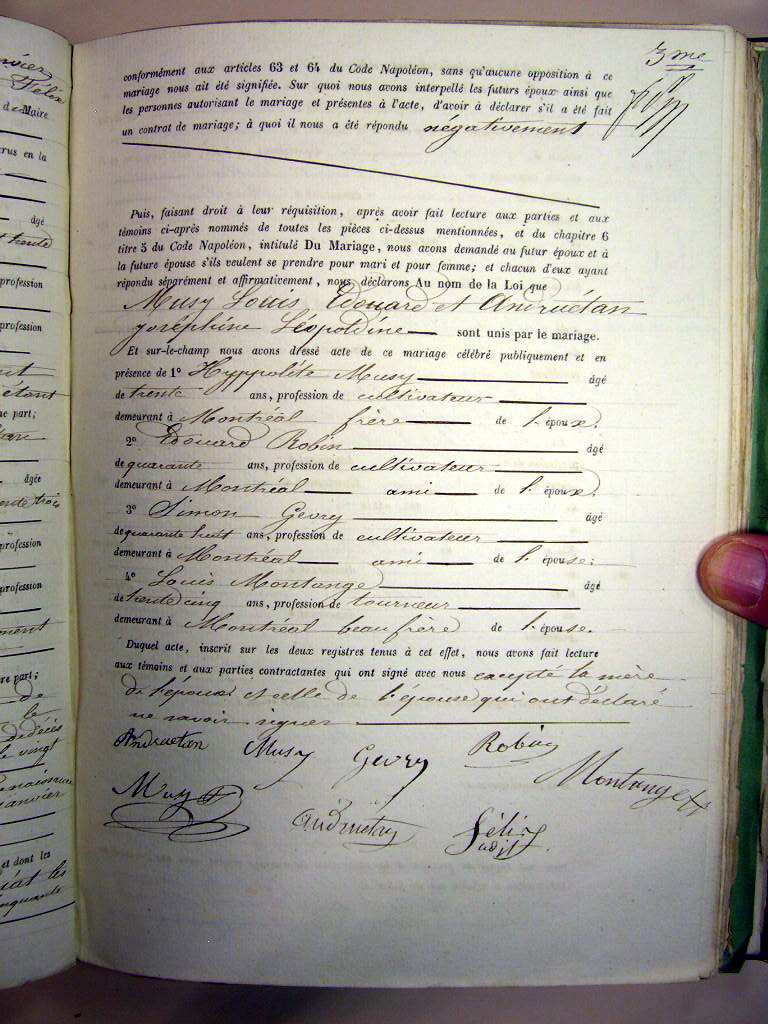 3me
conformément aux articles 63 et 64 du Code Napoléon, sans qu'aucune opposition à ce
mariage nous ait été signifiée. Sur quoi nous avons interpellé les futurs époux ainsi que
les personnes autorisant le mariage et présentes à l'acte, d'avoir à déclarer s'il a été fait
un contrat de mariage; à quoi il nous a été répondu négativement
Puis, faisant droit à leur réquisition, après avoir fait lecture aux parties et aux
témoins ci-après nommés de toutes les pièces ci-dessus mentionnées, et du chapitre 6
titre 5 du Code Napoléon, intitulé Du Mariage, nous avons demandé au futur époux et à
la future épouse s'ils veulent se prendre pour mari et pour femme; et chacun d'eux ayant
répondu séparément et affirmativement, nous déclarons Au nom de la Loi que
Musy Louis Edouard et Andruétan
Joséphine Léopoldine sont unis par le mariage.
Et sur-le-champ nous avons dressé acte de ce mariage célébré publiquement et en
présence de 1° Hyppolite Musy âgé
de trente ans, profession de cultivateur
demeurant à Montréal frère de l'époux.
2° Edouard Robin âgé
de quarante ans, profession de cultivateur
demeurant à Montréal ami de l'époux.
3° Simon Gevry âgé
de quarante huit ans, profession de cultivateur
demeurant à Montréal ami de l'épouse;
4° Louis Montange âgé
de trente cinq ans, profession de tourneur
demeurant à Montréal beau frère de l'épouse.
Duquel acte, inscrit sur les deux registres tenus à cet effet, nous avons fait lecture
aux témoins et aux parties contractantes qui ont signé avec nous excepté la mère
de l'époux et celle de l'épouse qui ont déclaré
ne savoir signer
Andruetan Musy Gevry Robin
Montange
Musy
Andruetan Félix
adjt.